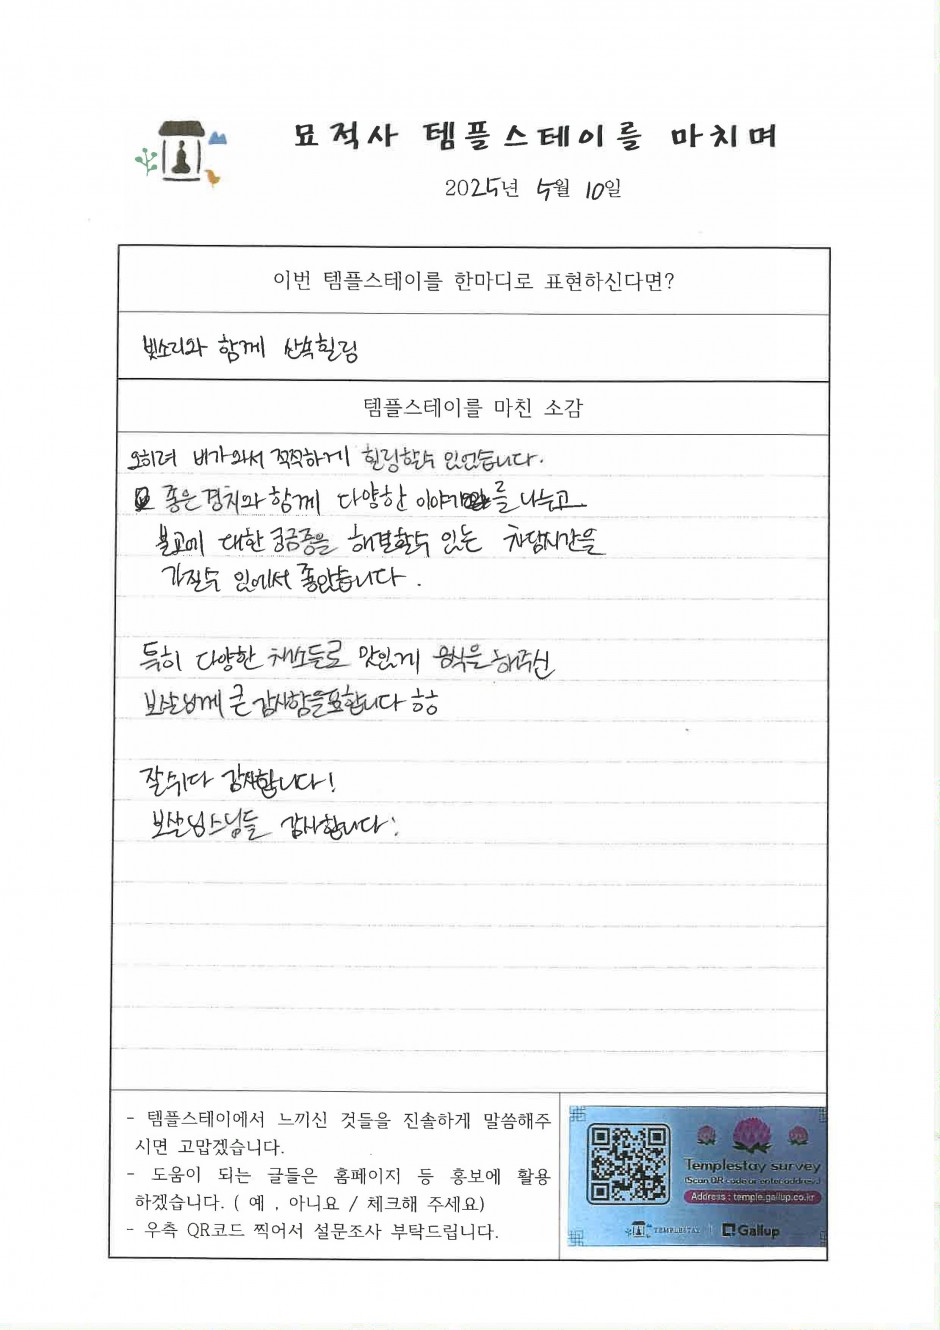 묘적사 템플스테이를 마치며
2025년 5월 10일
이번 템플스테이를 한마디로 표현하신다면?
빗소리와 함께 산속힐링
템플스테이를 마친 소감
오히려 비가와서 적적하게 힐링할수 있었습니다.
좋은 경치와 함께 다양한 이야기를 나누고
불교에 대한 궁금증을 해결할수 있는 차담시간을
가질수 있에서 좋았습니다.
특히 다양한 채소들로 맛있게 음식을 해주신
보살님께 큰 감사함을 표합니다 ㅎㅎ
잘쉬다 감사합니다!
보살님스님들 감사합니다:
- 템플스테이에서 느끼신 것들을 진솔하게 말씀해주
시면 고맙겠습니다.
- 도움이 되는 글들은 홈페이지 등 홍보에 활용
하겠습니다. ( 예 , 아니요 / 체크해 주세요)
- 우측 QR코드 찍어서 설문조사 부탁드립니다.
Templestay survey
(Scan QR code or enter address)
Address : temple.gallup.co.kr
TEMPLESTAY
Gallup